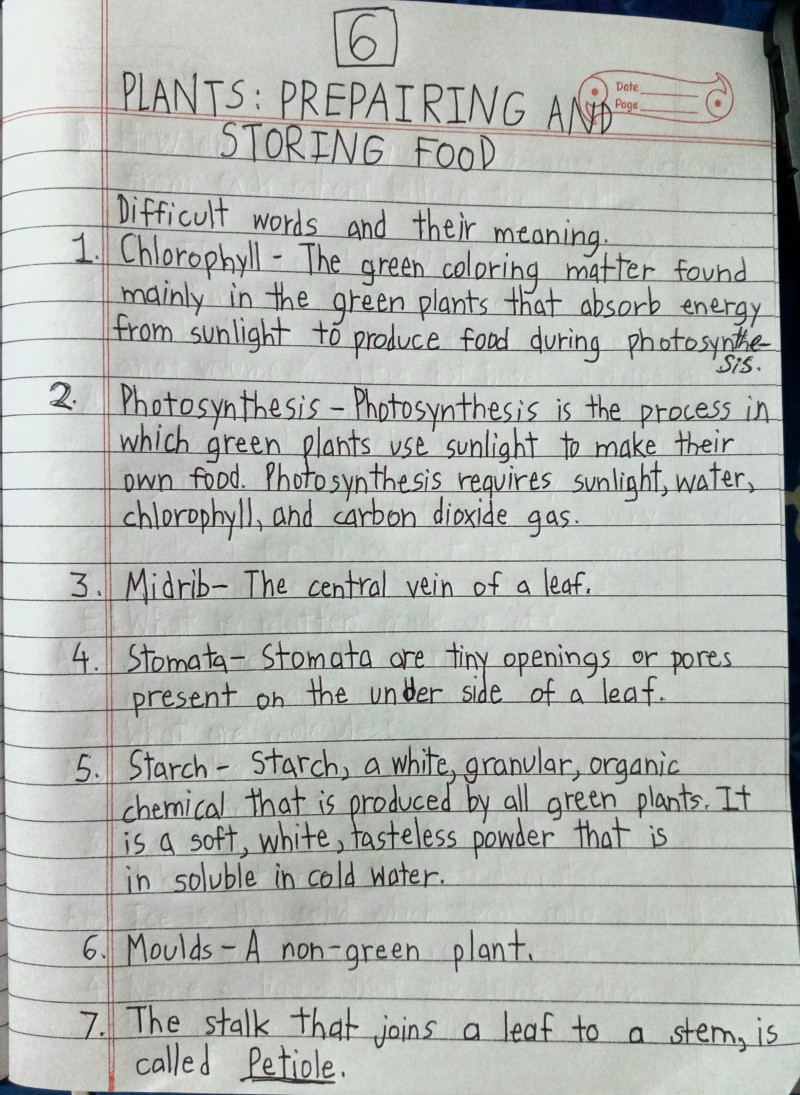 6
PLANTS: PREPAIRING AND
Date
Page
STORING FOOD
Difficult words and their meaning.
1. Chlorophyll - The green coloring matter found
mainly in the green plants that absorb energy
from sunlight to produce food during photosynthe-
sis.
2. Photosynthesis - Photosynthesis is the process in
which green plants use sunlight to make their
own food. Photosynthesis requires sunlight, water,
chlorophyll, and carbon dioxide gas.
3. Midrib - The central vein of a leaf.
4. Stomata - Stomata are tiny openings or pores
present on the under side of a leaf.
5. Starch - Starch, a white, granular, organic
chemical that is produced by all green plants. It
is a soft, white, tasteless powder that is
in soluble in cold water.
6. Moulds - A non-green plant.
7. The stalk that joins a leaf to a stem, is
called Petiole.